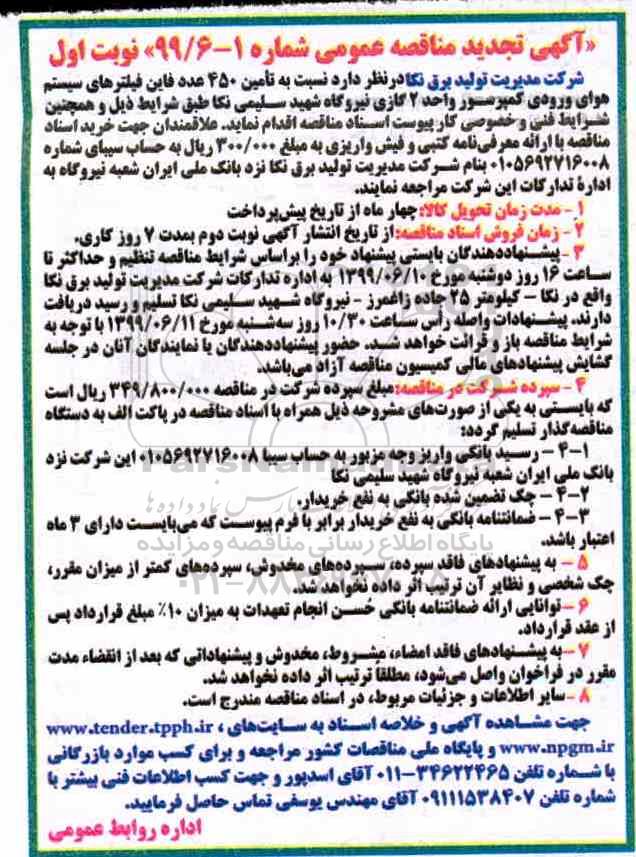 «آگهی تجدید مناقصه عمومی شماره ۱-۹۹/۶» نوبت اول
شرکت مدیریت تولید برق نکا درنظر دارد نسبت به تأمین ۴۵۰ عدد فاین فیلترهای سیستم
هوای ورودی کمپرسور واحد ۲ گازی نیروگاه شهید سلیمی نکا طبق شرایط ذیل و همچنین
شرایط فنی و خصوصی کار پیوست اسناد مناقصه اقدام نماید. علاقمندان جهت خرید اسناد
مناقصه با ارائه معرفی‌نامه کتبی و فیش واریزی به مبلغ ۳۰۰/۰۰۰ ریال به حساب سیبای شماره
۰۱۰۵۶۹۲۷۱۶۰۰۸ بنام شرکت مدیریت تولید برق نکا نزد بانک ملی ایران شعبه نیروگاه به
ادارهٔ تدارکات این شرکت مراجعه نمایند.
۱- مدت زمان تحویل کالا: چهار ماه از تاریخ پیش‌پرداخت
۲- زمان فروش اسناد مناقصه: از تاریخ انتشار آگهی نوبت دوم بمدت ۷ روز کاری.
۳- پیشنهاددهندگان بایستی پیشنهاد خود را براساس شرایط مناقصه تنظیم و حداکثر تا
ساعت ۱۶ روز دوشنبه مورخ ۱۳۹۹/۰۶/۱۰ به اداره تدارکات شرکت مدیریت تولید برق نکا
واقع در نکا – کیلومتر ۲۵ جاده زاغمرز - نیروگاه شهید سلیمی نکا تسلیم و رسید دریافت
دارند. پیشنهادات واصله رأس ساعت ۱۰/۳۰ روز سه‌شنبه مورخ ۱۳۹۹/۰۶/۱۱ با توجه به
شرایط مناقصه باز و قرائت خواهد شد. حضور پیشنهاددهندگان یا نمایندگان آنان در جلسه
گشایش پیشنهادهای مالی کمیسیون مناقصه آزاد می‌باشد.
۴- سپرده شرکت در مناقصه: مبلغ سپرده شرکت در مناقصه ۳۴۹/۸۰۰/۰۰۰ ریال است
که بایستی به یکی از صورت‌های مشروحه ذیل همراه با اسناد مناقصه در پاکت الف به دستگاه
مناقصه‌گذار تسلیم گردد:
۴-۱ – رسید بانکی واریز وجه مزبور به حساب سیبا ۰۱۰۵۶۹۲۷۱۶۰۰۸ این شرکت نزد
بانک ملی ایران شعبه نیروگاه شهید سلیمی نکا
۴-۲ – چک تضمین شده بانکی به نفع خریدار.
۴-۳ – ضمانتنامه بانکی به نفع خریدار برابر با فرم پیوست که می‌بایست دارای ۳ ماه
اعتبار باشد.
۵- به پیشنهادهای فاقد سپرده، سپرده‌های مخدوش، سپرده‌های کمتر از میزان مقرر،
چک شخصی و نظایر آن ترتیب اثر داده نخواهد شد.
۶-توانایی ارائه ضمانتنامه بانکی حُسن انجام تعهدات به میزان ۱۰٪ مبلغ قرارداد پس
از عقد قرارداد.
۷-به پیشنهادهای فاقد امضاء، مشروط، مخدوش و پیشنهاداتی که بعد از انقضاء مدت
مقرر در فراخوان واصل می‌شود، مطلقاً ترتیب اثر داده نخواهد شد.
۸-سایر اطلاعات و جزئیات مربوط، در اسناد مناقصه مندرج است.
جهت مشاهده آگهی و خلاصه اسناد به سایت‌های www.tender.tpph.ir ،
www.npgm.ir و پایگاه ملی مناقصات کشور مراجعه و برای کسب موارد بازرگانی
با شماره تلفن ۳۴۶۲۲۴۶۵-۰۱۱ آقای اسدپور و جهت کسب اطلاعات فنی بیشتر با
شماره تلفن ۰۹۱۱۱۵۳۸۴۰۷ آقای مهندس یوسفی تماس حاصل فرمایید.
اداره روابط عمومی